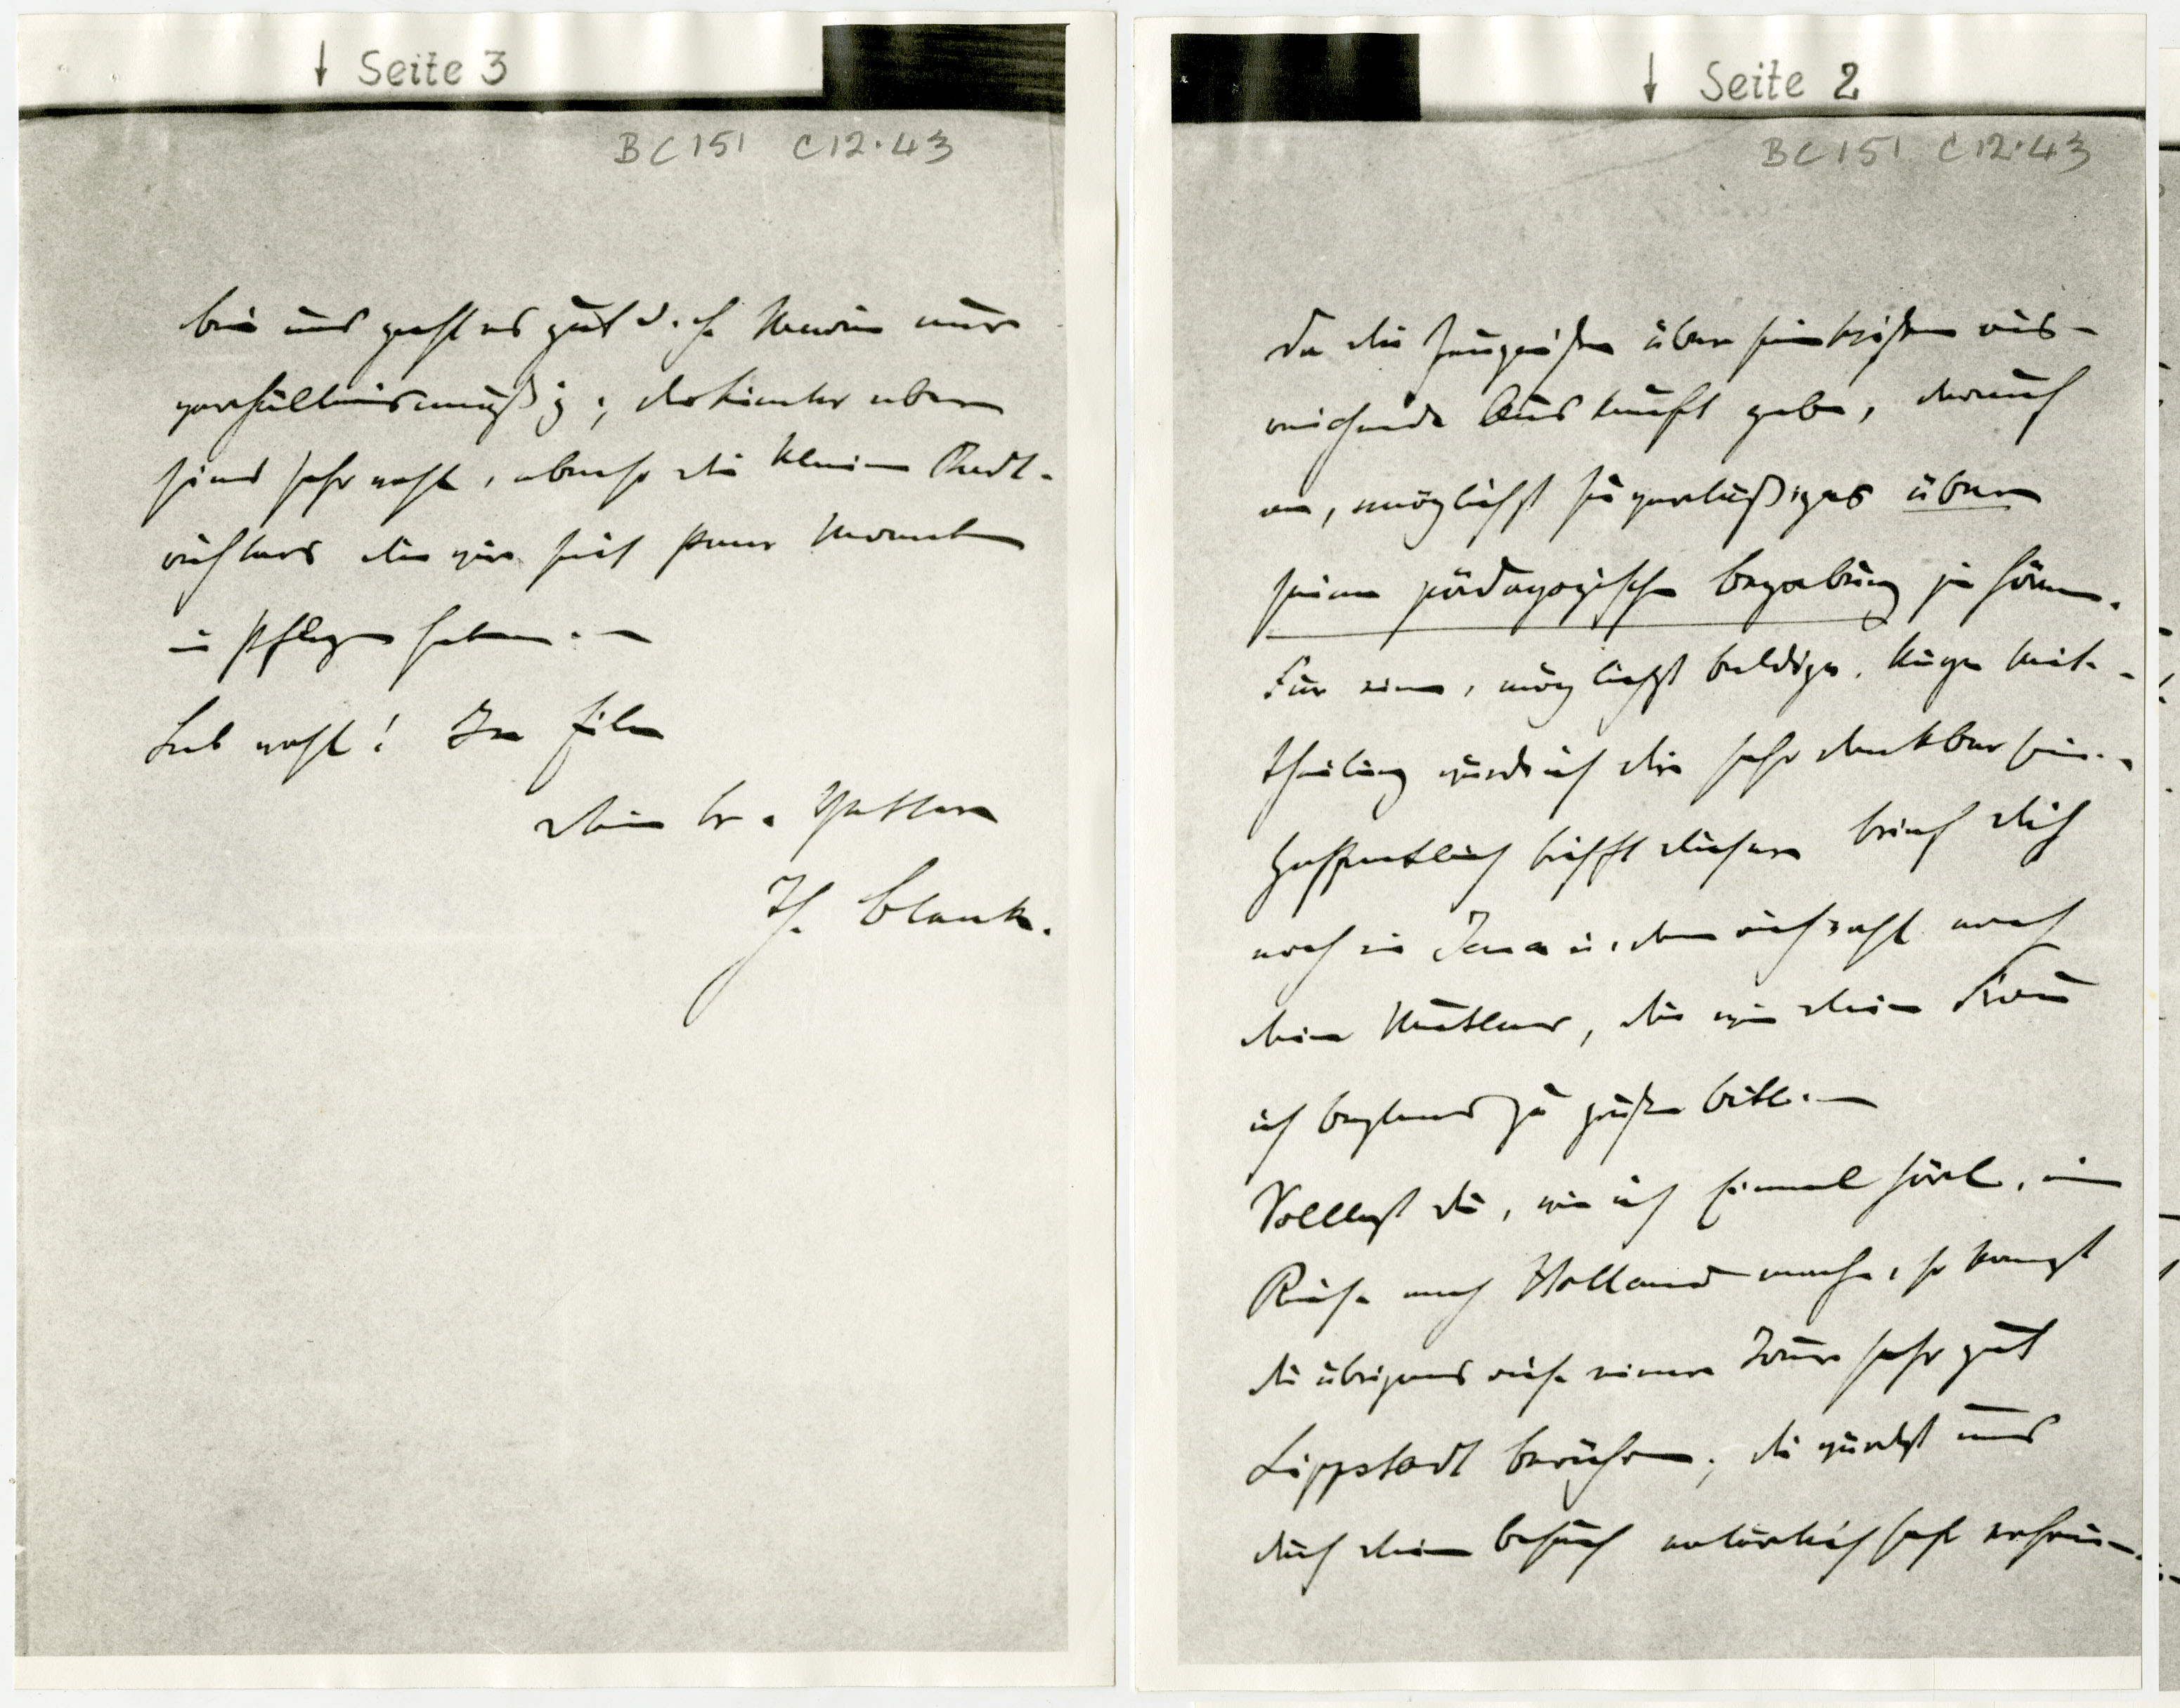 ↓ Seite 3
BC 151 C12.43
bei uns geht es gut d. h. Marie nur
verhältnismäßig; die Kinder aber
sind sehr wohl, ebenso die kleinen
die wir seit paar Monaten
in Pflege haben. —
Leb wohl! In Eile
dein tr. Vetter
H. Clauk.
↓ Seite 2
BC 151 C12.43
Da die Zeugnisse über sein Wissen aus-
reichende Auskunft geben, darauf
an, möglichst zuverläßiges über
seine pädagogische Begabung zu hören.
Für eine, möglichst baldige, Mit-
theilung würde ich dir sehr dankbar sein. -
Hoffentlich trifft dieser Brief dich
noch in Jena
deine Mutter, die wie deine Frau
ich bestens zu grüßen bitte. —
Solltest du, wie ich einmal hörte, eine
Reise nach Holland machen, so kannst
du übrigens auf einer Tour sehr gut
Lippstadt berühren; du würdest uns
durch deinen Besuch natürlich sehr erfreuen.